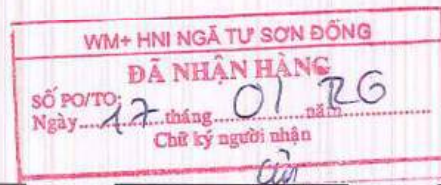 WM+ HNI NGÃ TƯ SƠN ĐỒNG
ĐÃ NHẬN HÀNG
SỐ PO/TO:
Ngày.....17.....tháng.....01.....năm.....26
Chữ ký người nhận